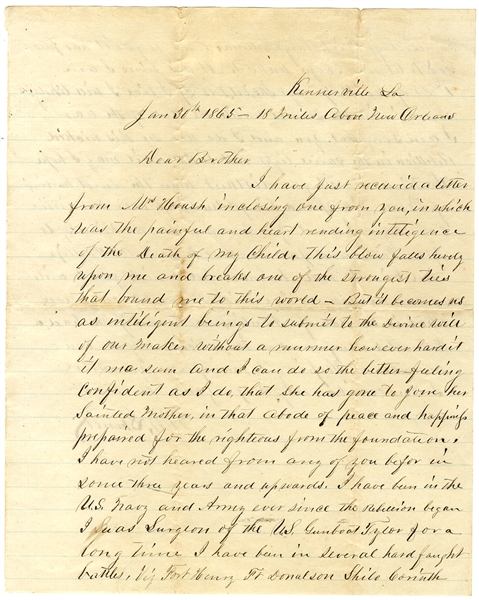 Kennerville La
Jan 30th 1865 - 18 miles above New Orleans
Dear Brother
I have just received a letter
from Mrs Housh inclosing one from you, in which
was the painful and heart rending inteligence
of the Death of my Child, This blow falls hevely
upon me and breaks one of the strongist ties
that bound me to this world - But it becomes us
as inteligent beings to submit to the Divine will
of our Maker without a murmer how ever hard it
it ma seem and I can do so the better feeling
Confident as I do, that she has gone to join her
Sainted Mother, in that abode of peace and happiness
prepaired for the righteous from the foundation.
I have not heared from any of you befor in
some three years and upwards. I have ben in the
U.S. Navy and Army ever since the rebelion began
I was Surgeon of the U.S. Gunboat Tylor for a
long time I have ben in several hard faught
battles, viz Fort Henry Ft Donalson Shilo Corinth